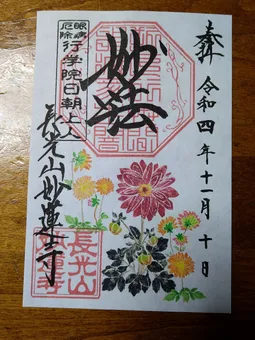 奉拝
令和四年十一月十日
妙法
眼病
厄除
行学院日朝上人
長光山妙蓮寺
長光山
妙蓮寺